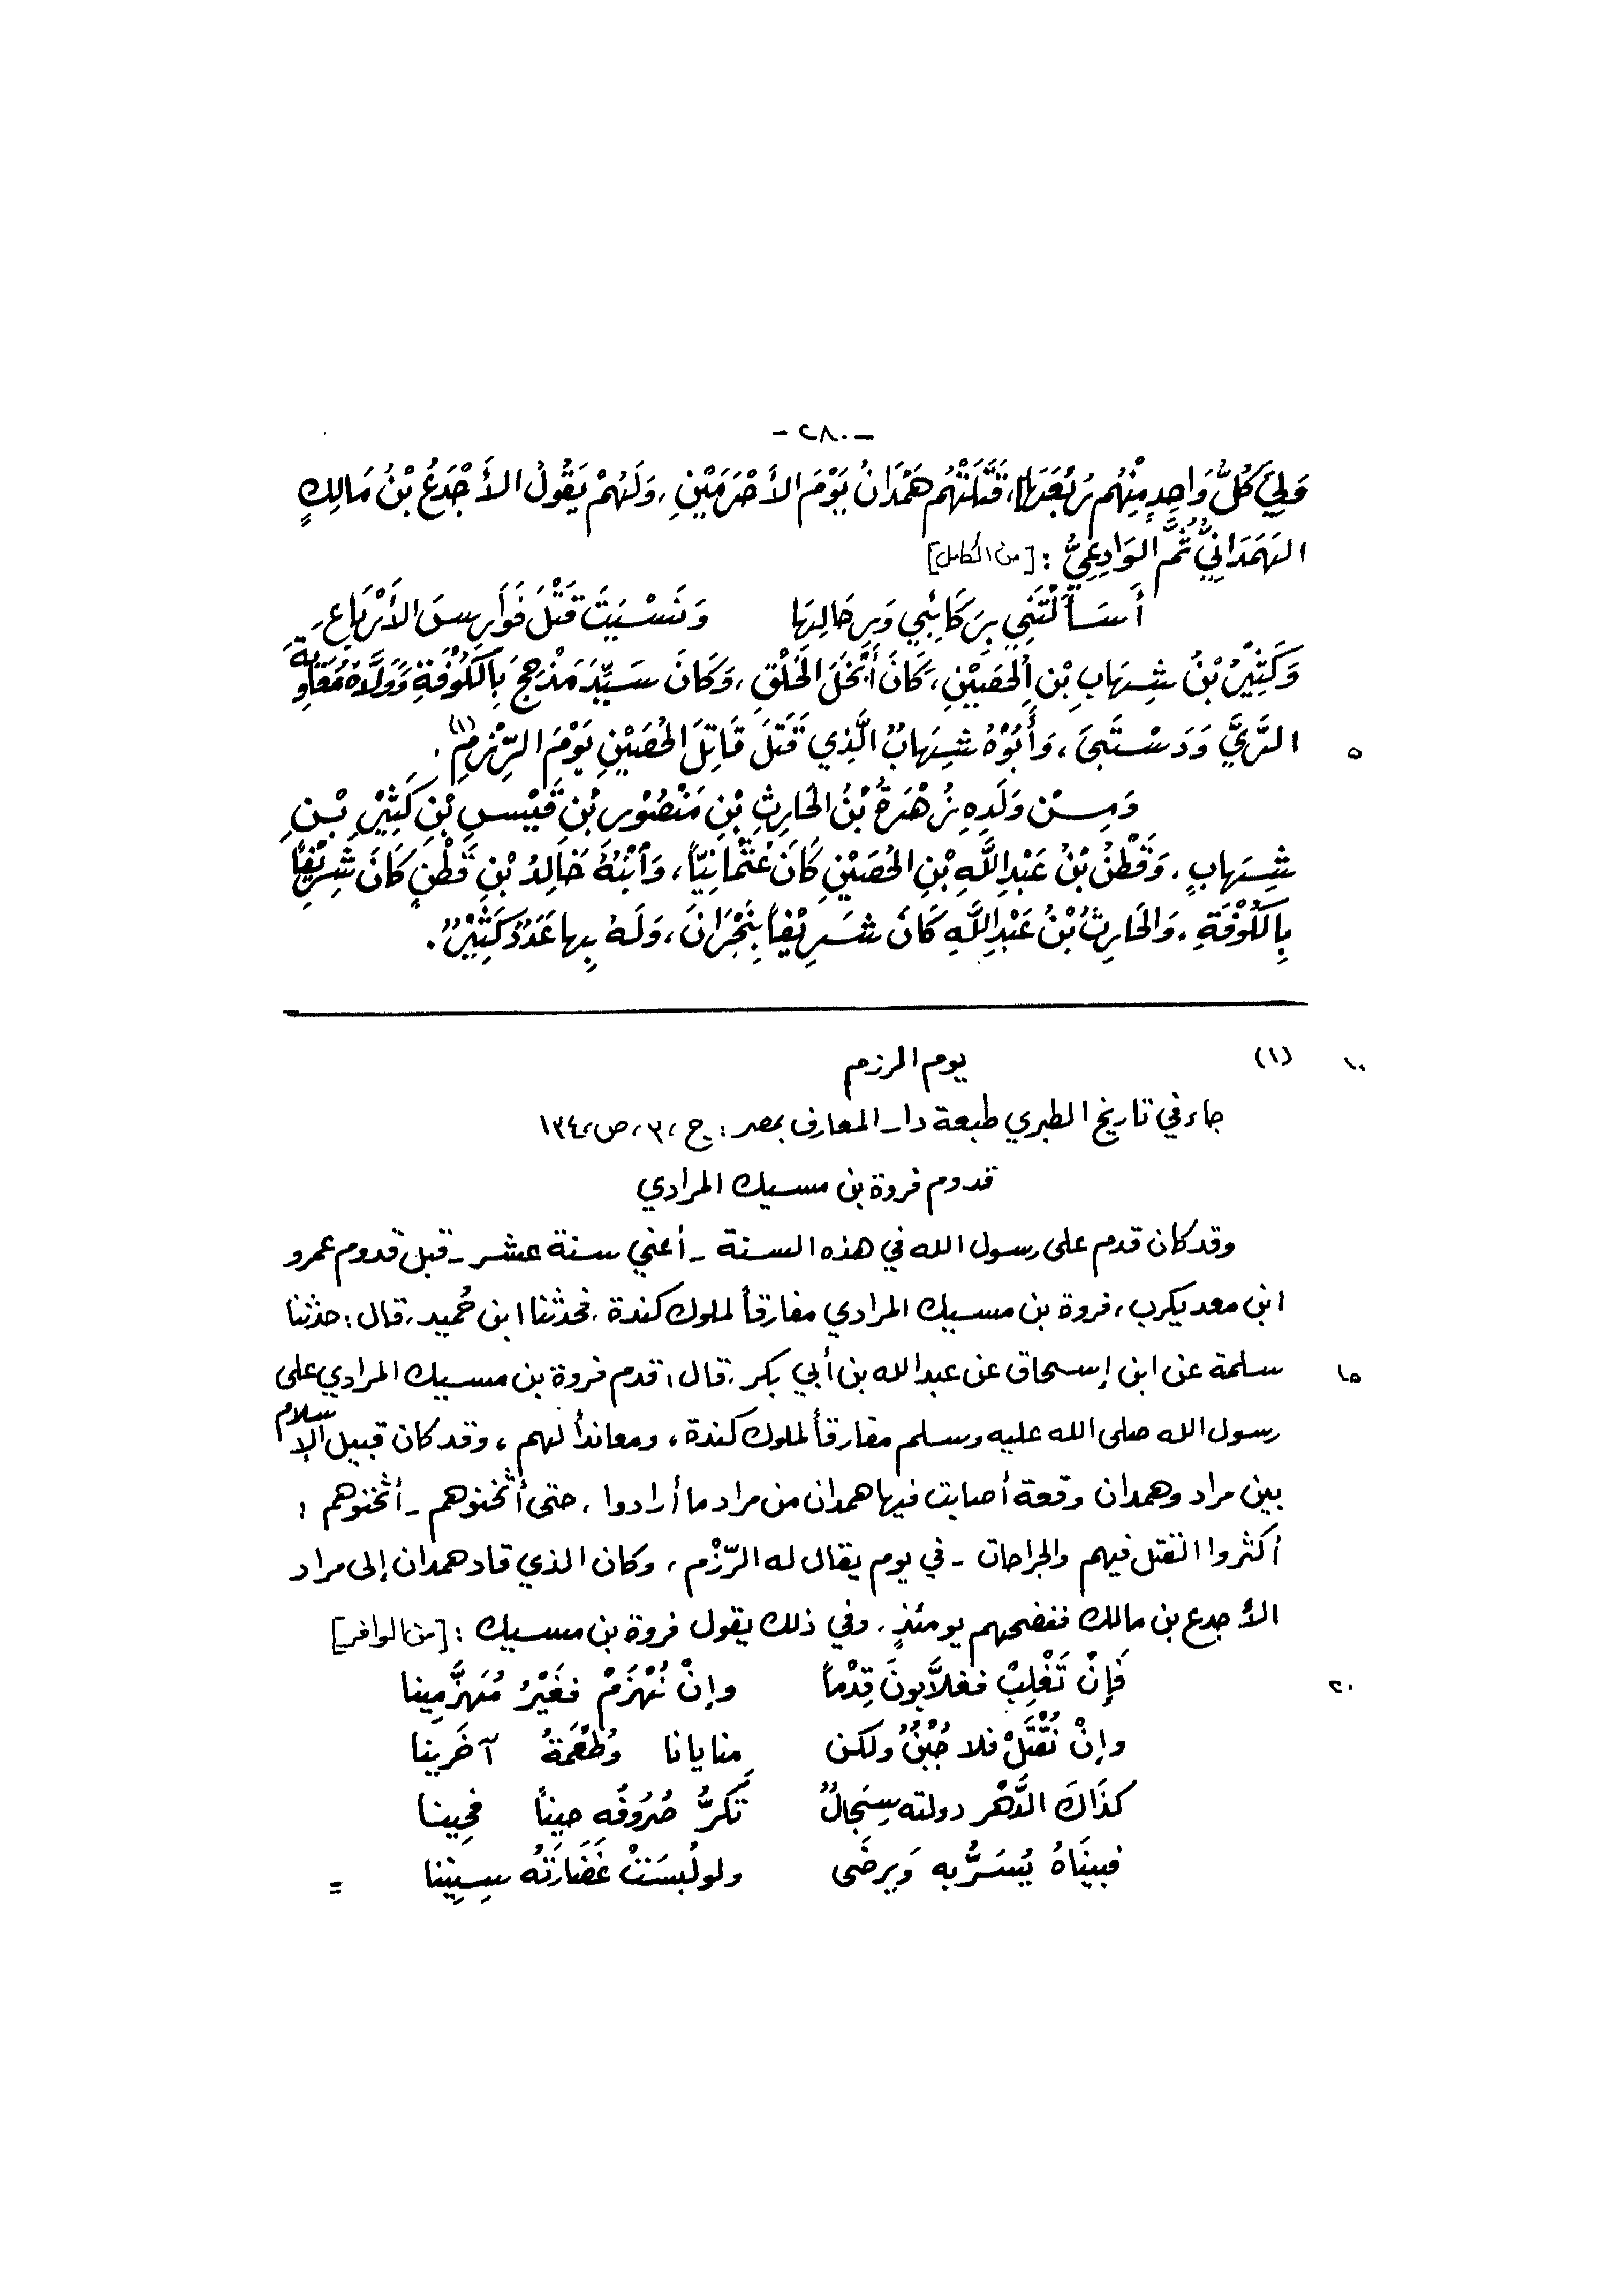 -٢٨٠-
وَلِيَ كُلُّ وَاحِدٍ مِنْهُم رُبْعَهَا، قَتَلَتْهُم هَمْدَانُ يَوْمَ الأَحْرَمَيْنِ، وَلَهُمْ يَقُولُ الأَجْدَعُ بْنُ مَالِكٍ
الهَمَدَانِيُّ ثُمَّ الوَادِعِيُّ : [من الكامل]
أَسَأَلْتَنِي بِرَكَائِبِي وَرِحَالِهَا وَنَسْيَتَ قَتْلَ فَوَارِسَ الأَرْبَاعِ
وَكَثِيْرُ بْنُ شِهَابِ بْنِ الحُصَيْنِ، كَانَ أَبْخَلَ الخَلْقِ، وَكَانَ سَيِّدَ مَذْحِجَ بِالكُوْفَةِ وَوَلَّاهُ مُعَاوِيَةُ
الرَّيَّ وَدَسْتَبَى، وَأَبُوْهُ شِهَابُ الَّذِي قَتَلَ قَاتِلَ الحُصَيْنِ يَوْمَ الرِّزْمِ (١).
٥
وَمِنْ وَلَدِهِ زُهْرَةُ بْنُ الحَارِثِ بْنِ مَنْصُوْرِ بْنِ قَيْسِ بْنِ كَثِيْرِ بْنِ
شِهَابٍ، وَقَطْنُ بْنُ عَبْدِ اللَّهِ بْنِ الحُصَيْنِ كَانَ عُثْمَانِيّاً، وَابْنُهُ خَالِدُ بْنِ قَطْنٍ كَانَ شَرِيْفاً
بِالكُوْفَةِ، وَالحَارِثُ بْنُ عَبْدِ اللَّهِ كَانَ شَرِيْفاً بِنَجْرَانَ، وَلَهُ بِها عَدَدٌ كَثِيْرٌ.
(١) يوم الرزم
١٠
جاء في تاريخ الطبري طبعة دار المعارف بمصر: ج، ٣، ص، ١٣٤
قدوم فروة بن مسيك المرادي
وقد كان قدم على رسول الله في هذه السنة - أعني سنة عشر - قبل قدوم عمرو
ابن معد يكرب، فروة بن مسيك المرادي مفارقاً لملوك كندة، فحدثنا ابن حُميد، قال: حدثنا
سلمة عن ابن إسحاق عن عبد الله بن أبي بكر، قال: قدم فروة بن مسيك المرادي على
١٥
رسول الله صلى الله عليه وسلم مفارقاً لملوك كندة، ومعانداً لهم، وقد كان قبيل الإسلام
بين مراد وهمدان وقعة أصابت فيها همدان من مراد ما أرادوا، حتى أثخنوهم - أثخنوهم :
أكثروا القتل فيهم والجراحات - في يوم يقال له الرّزْم، وكان الذي قاد همدان إلى مراد
الأجدع بن مالك ففضحهم يومئذٍ، وفي ذلك يقول فروة بن مسيك : [من الوافر]
فَإِنْ نَغْلِبْ فغلاَّبونَ قِدْماً وإنْ نُهْزَمْ فغَيْرُ مُهَزَّمِينا
٢٠
وإنْ نُقْتَلْ فلا جُبْنٌ ولكن منايانا وطُعْمَةُ آخَرِينا
كذَاكَ الدَّهْر دولته سِجَالٌ تَكرُّ صُرُوفُه حيناً فحِينا
فبينَاهُ يُسَرُّ به وَيرضَى ولو لُبسَتْ غَضَارَتُه سِنِينا
=